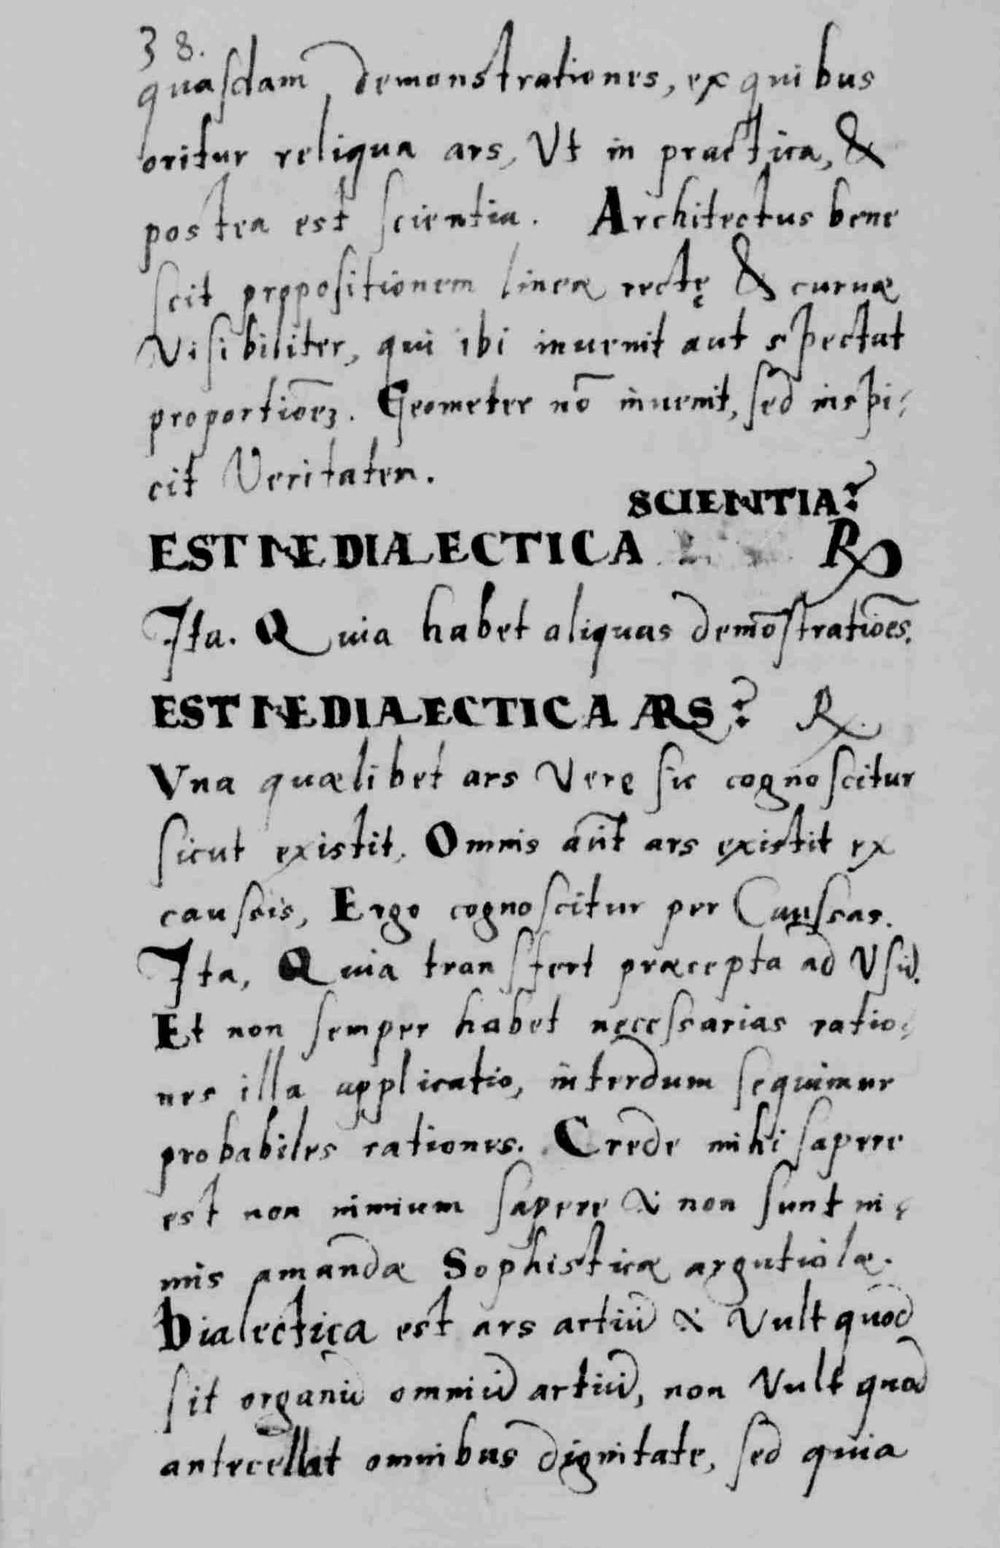 38.
quasdam demonstrationes, ex quibus
oritur reliqua ars, Vt in practica, &
postea est scientia. Architectus bene
scit propositionem lineæ rectę & curuæ
Visibiliter, qui ibi inuenit aut spectat
proportiōeʒ. Geometer nō inuenit, sed inspi:
cit Veritatem.
SCIENTIA?
EST NE DIALECTICA ℞
Ita. Quia habet aliquas demōstratiōes.
EST NE DIALECTICA ARS? ℞.
Vna quælibet ars Vere sic cognoscitur
sicut existit. Omnis aūt ars existit ex
caussis, Ergo cognoscitur per Caussas.
Ita, Quia transfert præcepta ad Vsū.
Et non semper habet necessarias ratio:
nes illa applicatio, interdum sequimur
probabiles rationes. Crede mihi sapere
est non nimium sapere & non sunt ni:
mis amandæ Sophisticæ argutiolæ.
Dialectica est ars artiū & Vult quod
sit organū omniū artiū, non Vult quod
antecellat omnibus dignitate, sed quia